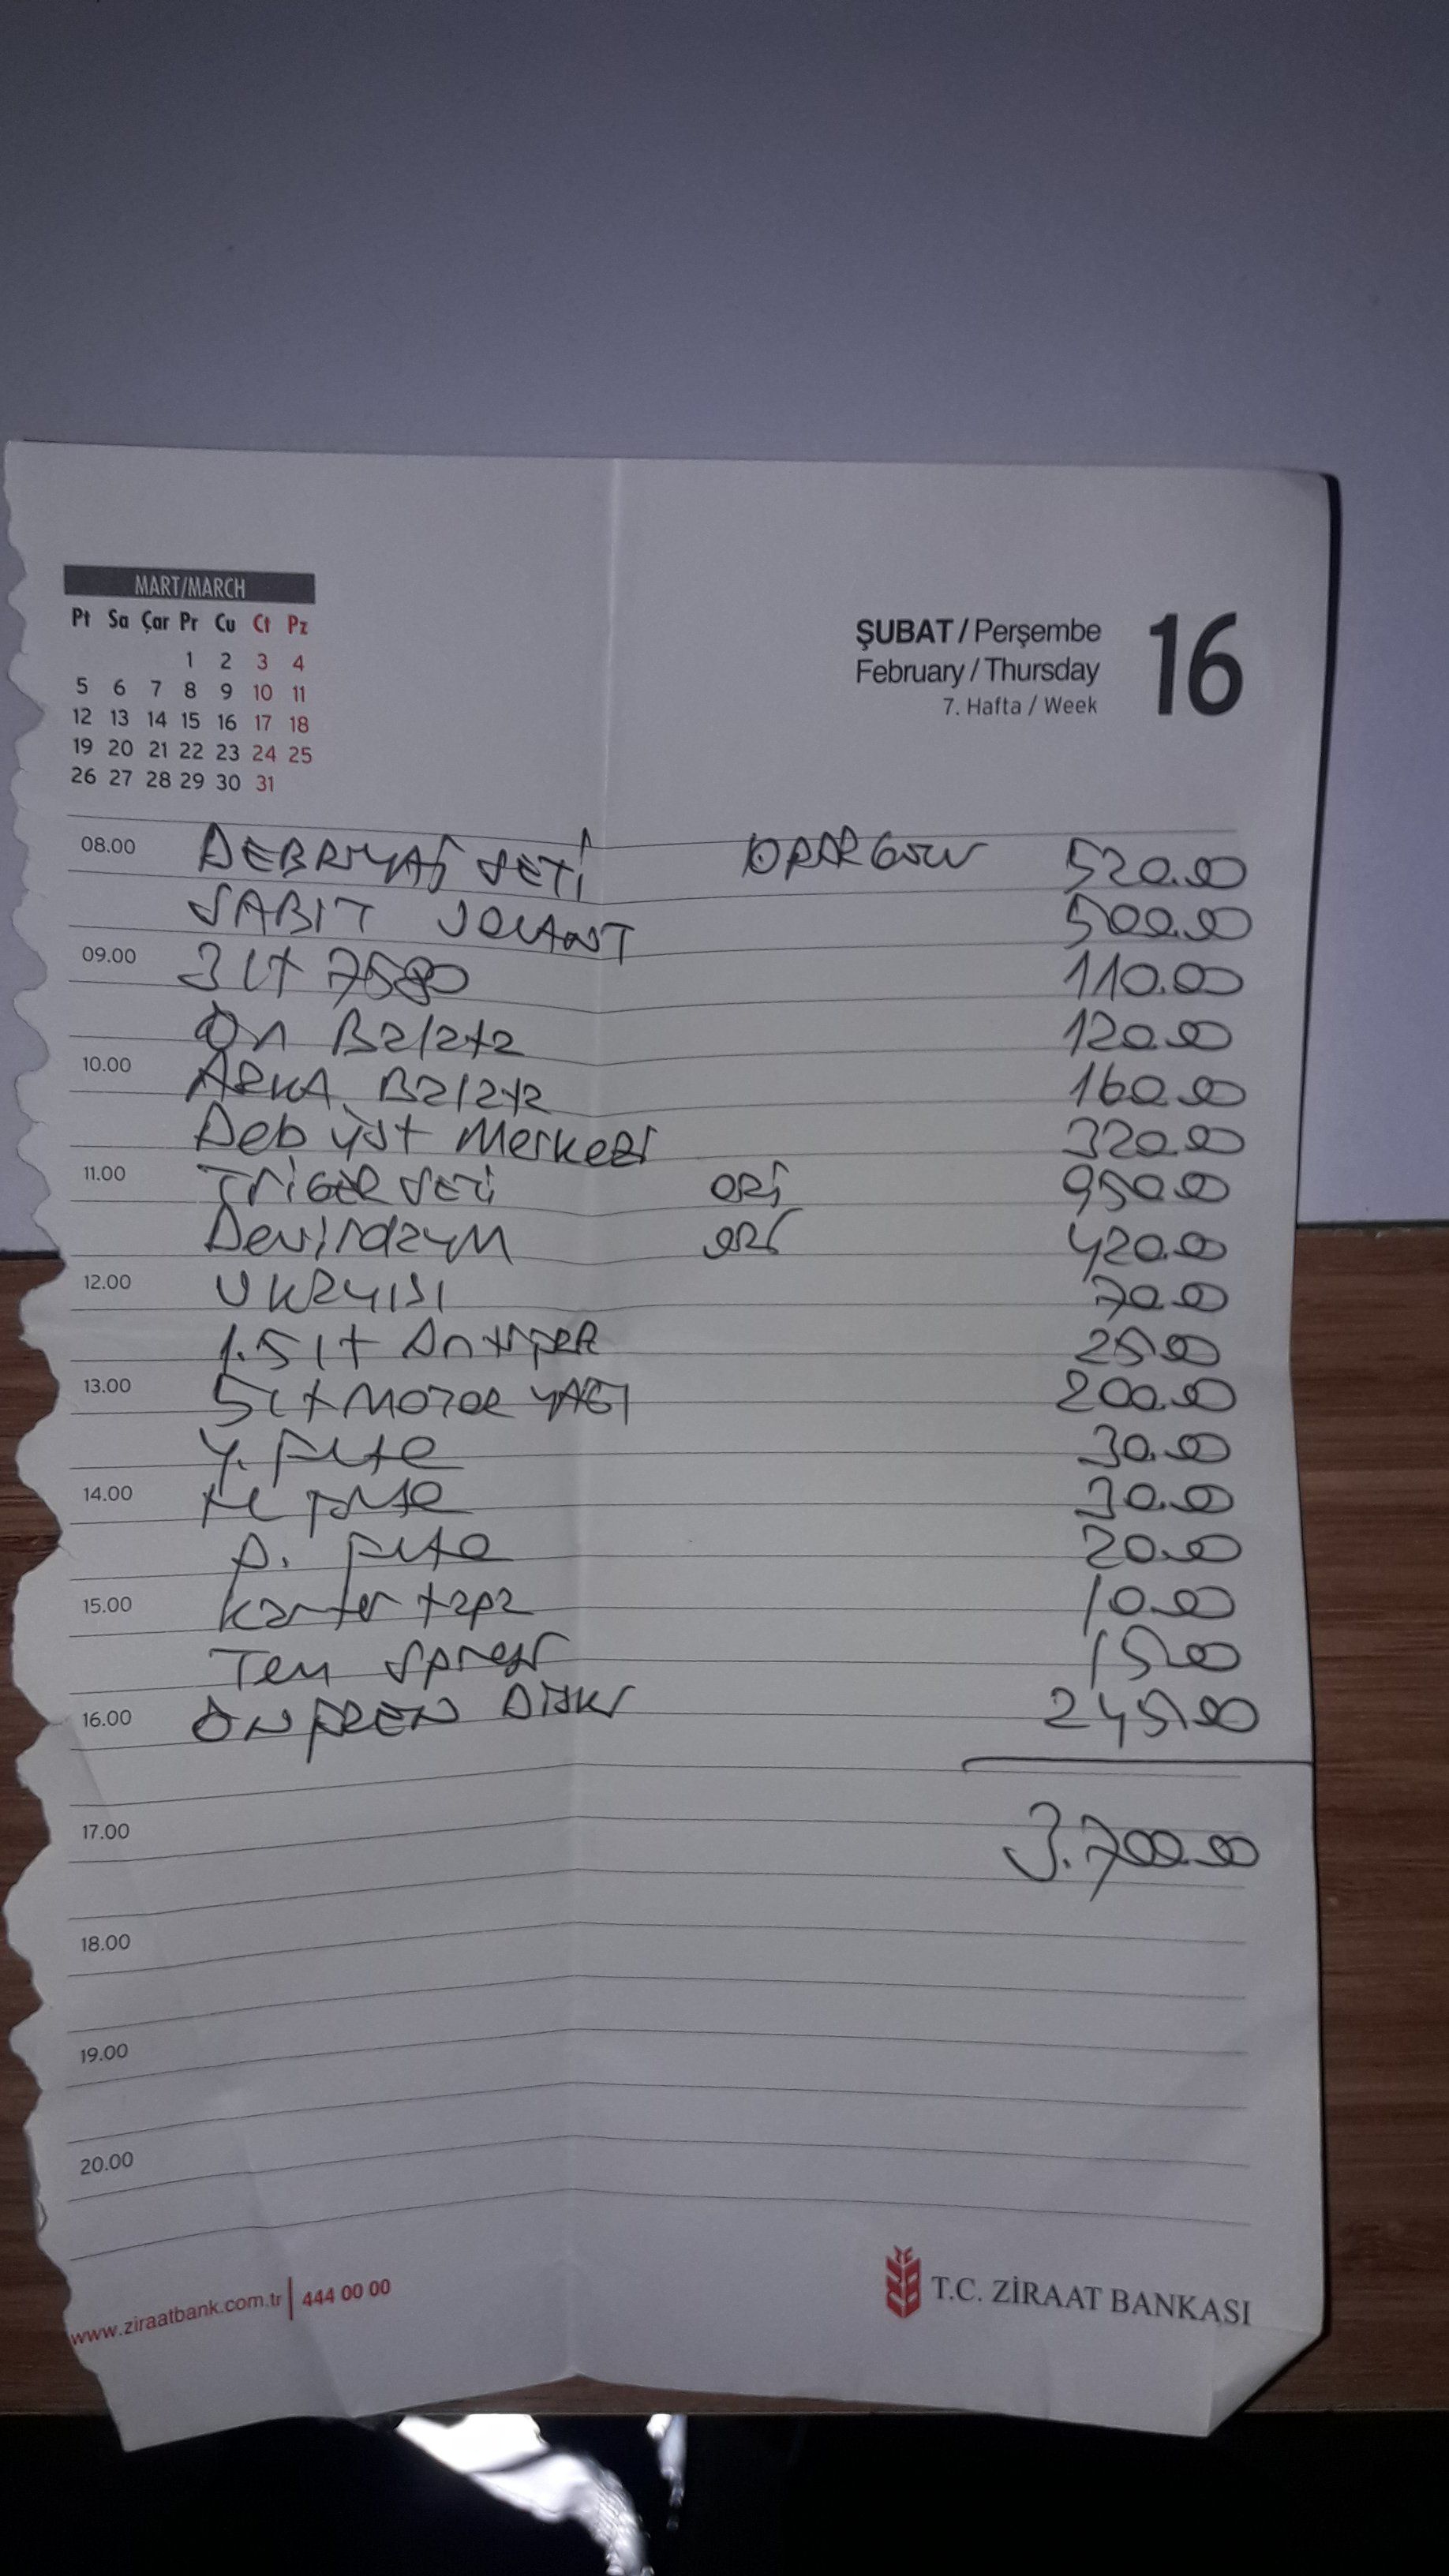 MART/MARCH
Pt Sa Çar Pr Cu Ct Pz
1 2 3 4
5 6 7 8 9 10 11
12 13 14 15 16 17 18
19 20 21 22 23 24 25
26 27 28 29 30 31
ŞUBAT / Perşembe 16
February / Thursday
7. Hafta / Week
08.00 DEBRİYAJ SETİ 520.00
SABIT VOLANT 500.00
09.00 3 Lt 7580 110.00
Ön B2l2t2 120.00
10.00 ARKA B2l2t2 160.00
Deb üst Merkezi 320.00
11.00 TRİGER SETİ ORJ 950.00
Devirdaym ORJ 420.00
12.00 V KAYISI 70.00
1.5 lt Antifer 25.00
13.00 5 Lt MOTOR YAĞI 200.00
Y. filtre 30.00
30.00
14.00 20.00
15.00 Karter tapa 10.00
Tem Spreyi 15.00
16.00 ÖN FREN DİSKİ 245.00
17.00 3.700.00
18.00
19.00
20.00
www.ziraatbank.com.tr | 444 00 00
T.C. ZİRAAT BANKASI